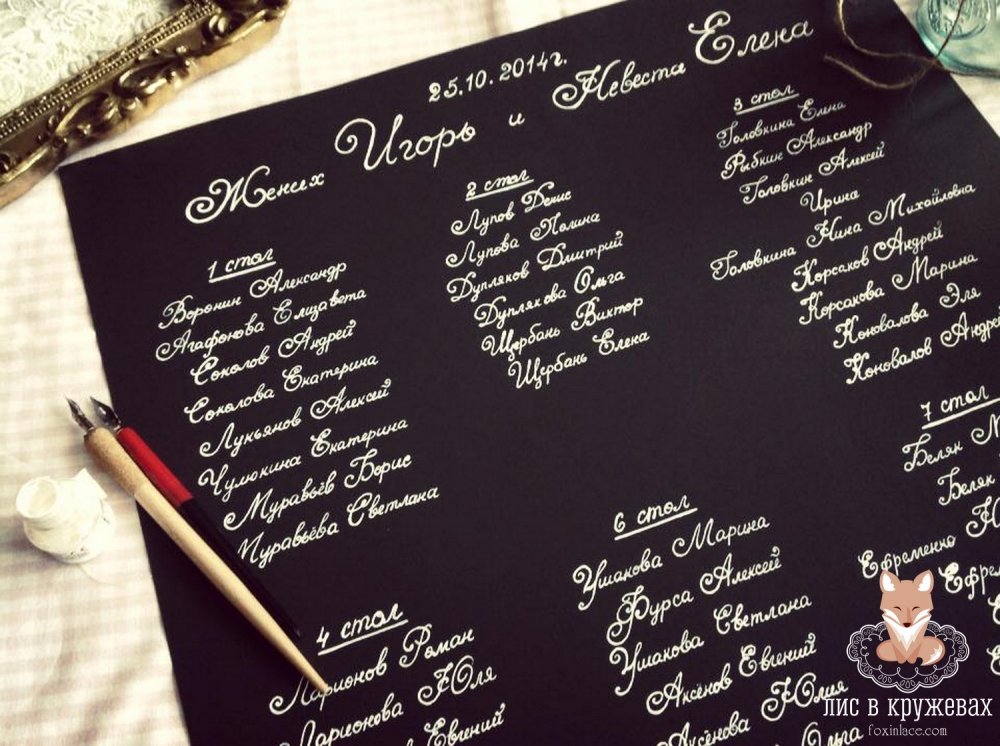 25.10.2014г.
Жених Игорь и Невеста Елена
1 стол
Воронин Александр
Агафонова Елизавета
Соколов Андрей
Соколова Екатерина
Лукьянов Алексей
Чулюкина Екатерина
Муравьёв Борис
Муравьёва Светлана
2 стол
Лупов Денис
Лупова Полина
Дупляков Дмитрий
Дуплякова Ольга
Щербань Виктор
Щербань Елена
3 стол
Головкина Елена
Рыбкин Александр
Головкин Алексей
Ирина
Головкина Нина Михайловна
Корсаков Андрей
Корсакова Марина
Коновалова Эля
Коновалов Андре
4 стол
Ларионов Роман
Ларионова Юля
Евгений
6 стол
Ушакова Марина
Фурса Алексей
Ушакова Светлана
Аксёнов Евгений
Аксёнова Юлия
Ольга
7 стол
Беляк
Беляк
Ефременко
Ефрем
лис в кружевах
foxinlace.com